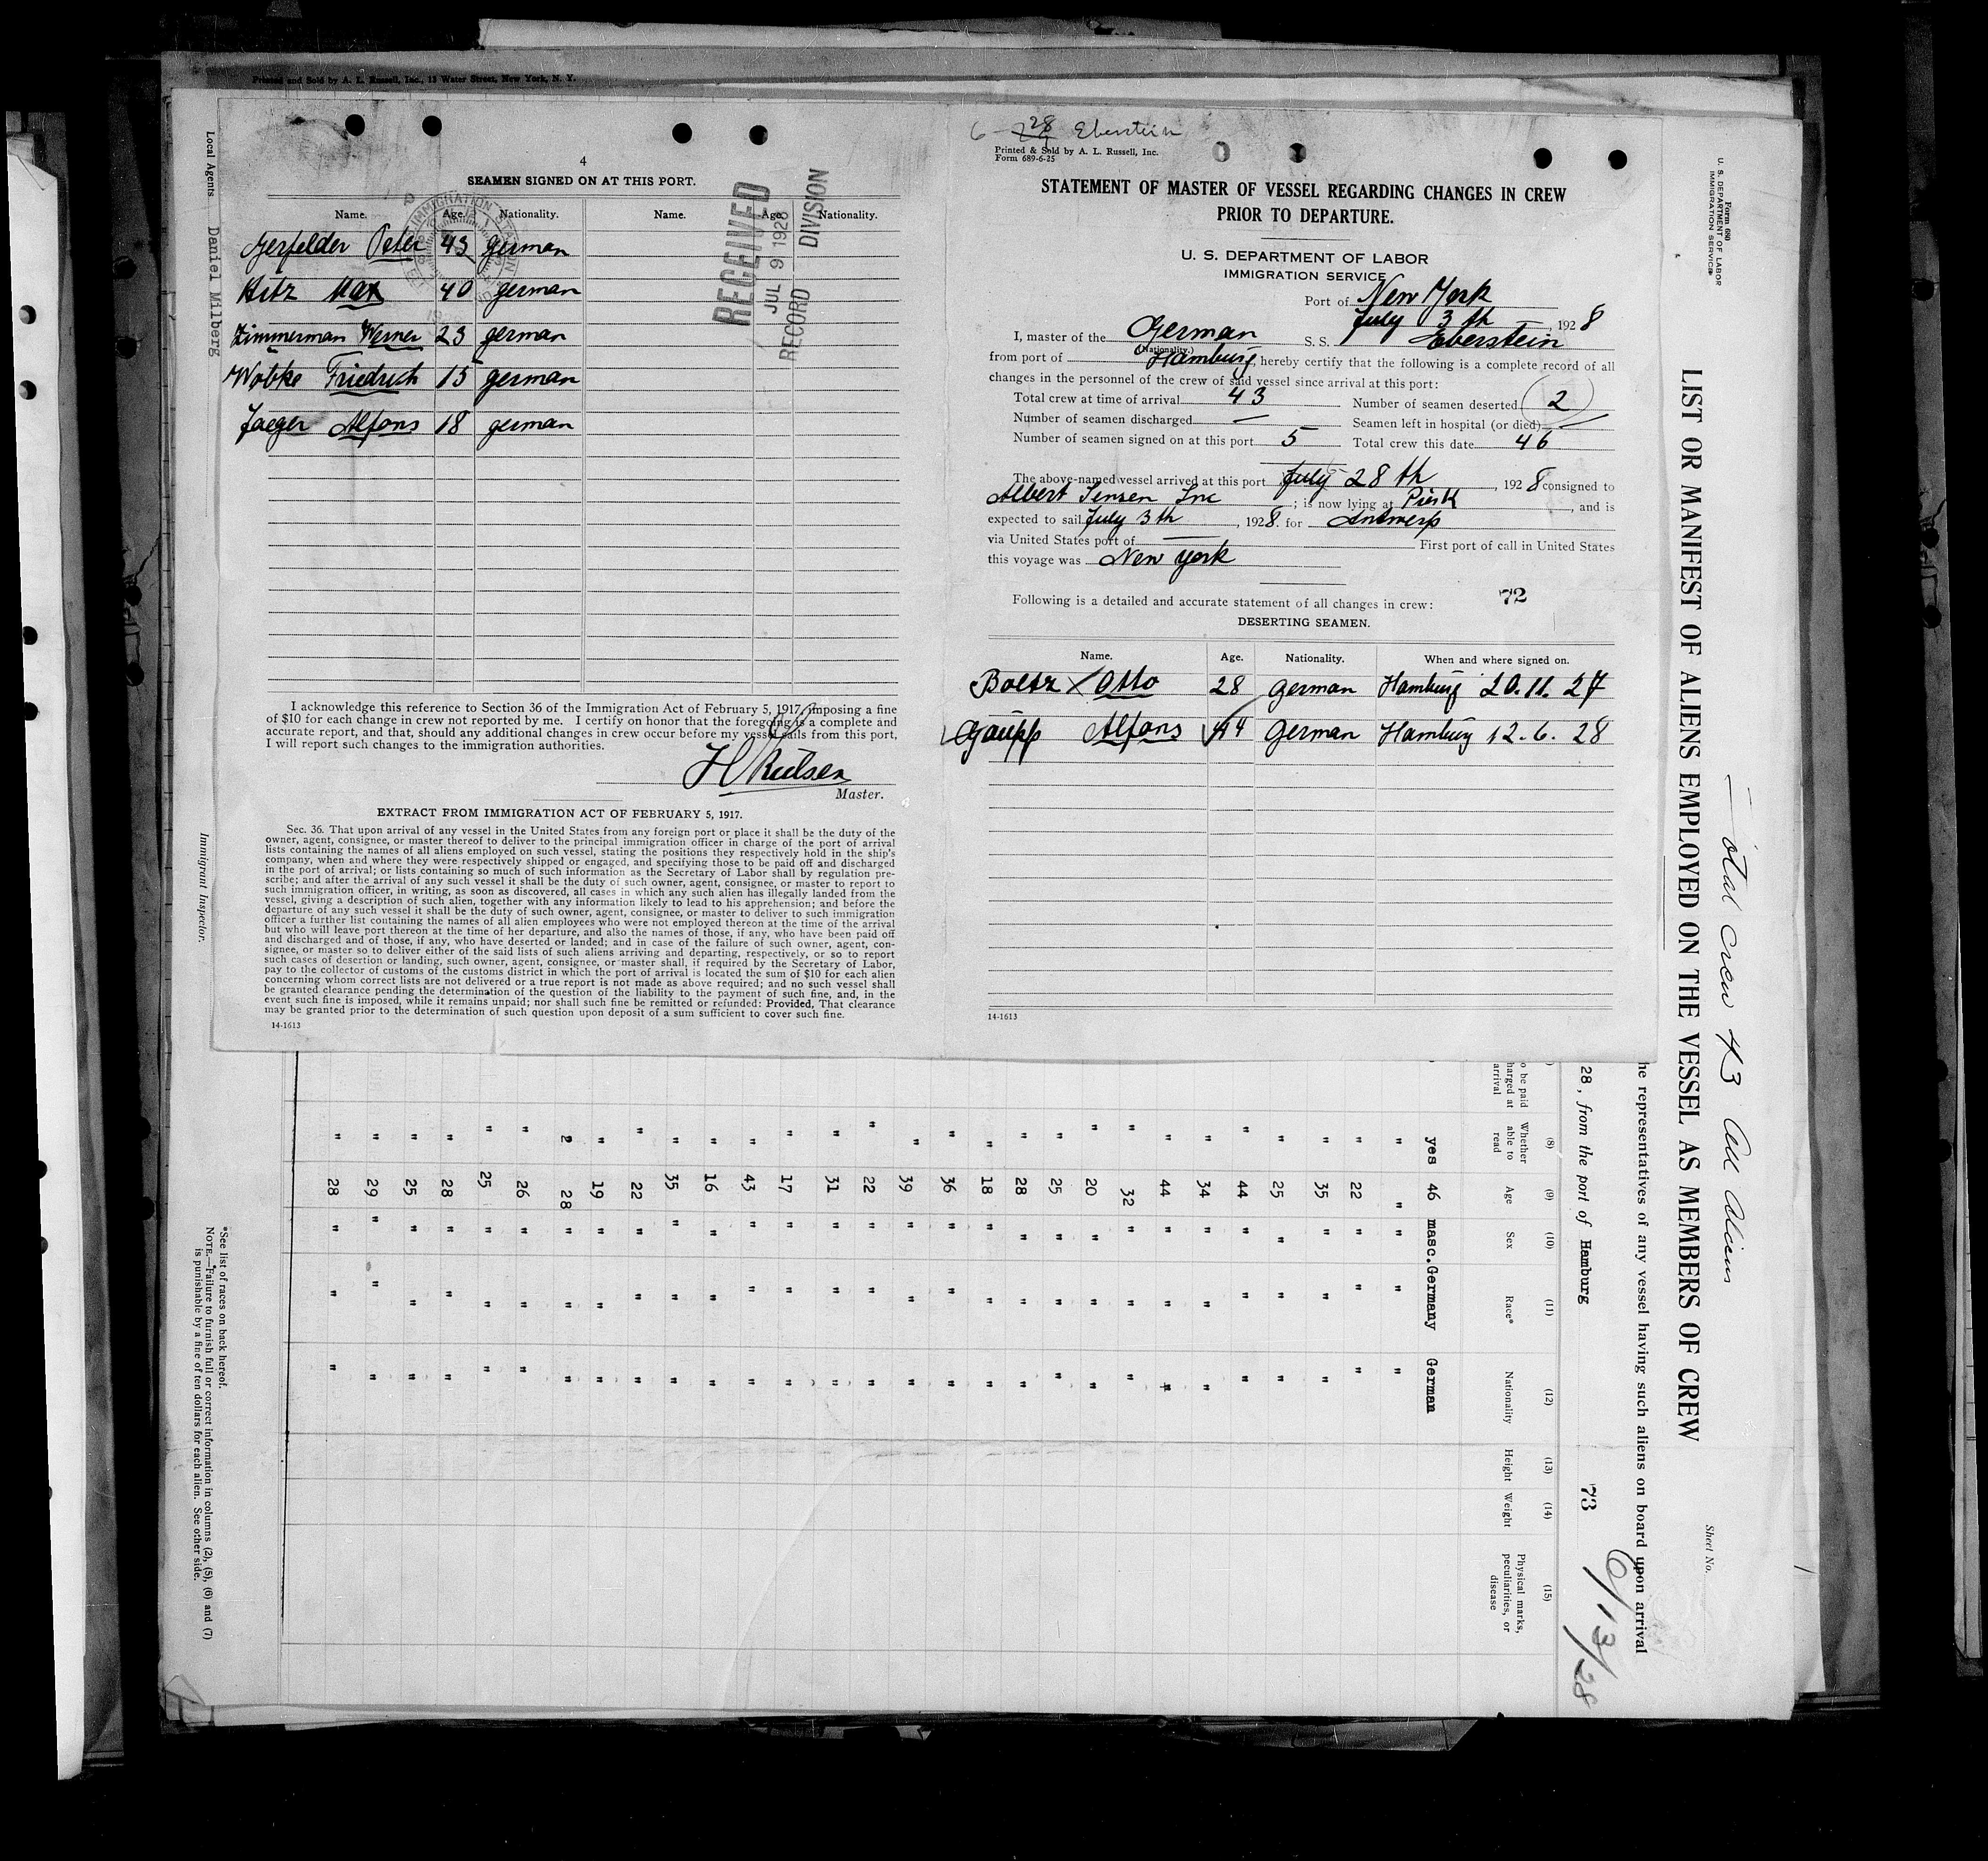 Printed and Sold by A. L. Russell, Inc., 13 Water Street, New York, N. Y.
Local Agents
Daniel Milberg
Immigrant Inspector.
4
SEAMEN SIGNED ON AT THIS PORT.
Name. Age. Nationality. Name. Age. Nationality.
Gerfelder Peter 43 german
Hitz Max 40 german
Zimmerman Werner 23 german
Wobke Friedrich 15 german
Jaeger Alfons 18 german
RECEIVED
JUL 9 1928
RECORD DIVISION
I acknowledge this reference to Section 36 of the Immigration Act of February 5, 1917, imposing a fine
of $10 for each change in crew not reported by me. I certify on honor that the foregoing is a complete and
accurate report, and that, should any additional changes in crew occur before my vessel sails from this port,
I will report such changes to the immigration authorities.
Master.
EXTRACT FROM IMMIGRATION ACT OF FEBRUARY 5, 1917.
Sec. 36. That upon arrival of any vessel in the United States from any foreign port or place it shall be the duty of the
owner, agent, consignee, or master thereof to deliver to the principal immigration officer in charge of the port of arrival
lists containing the names of all aliens employed on such vessel, stating the positions they respectively hold in the ship's
company, when and where they were respectively shipped or engaged, and specifying those to be paid off and discharged
in the port of arrival; or lists containing so much of such information as the Secretary of Labor shall by regulation pre-
scribe; and after the arrival of any such vessel it shall be the duty of such owner, agent, consignee, or master to report to
such immigration officer, in writing, as soon as discovered, all cases in which any such alien has illegally landed from the
vessel, giving a description of such alien, together with any information likely to lead to his apprehension; and before the
departure of any such vessel it shall be the duty of such owner, agent, consignee, or master to deliver to such immigration
officer a further list containing the names of all alien employees who were not employed thereon at the time of the arrival
but who will leave port thereon at the time of her departure, and also the names of those, if any, who have been paid off
and discharged and of those, if any, who have deserted or landed; and in case of the failure of such owner, agent, con-
signee, or master so to deliver either of the said lists of such aliens arriving and departing, respectively, or so to report
such cases of desertion or landing, such owner, agent, consignee, or master shall, if required by the Secretary of Labor,
pay to the collector of customs of the customs district in which the port of arrival is located the sum of $10 for each alien
concerning whom correct lists are not delivered or a true report is not made as above required; and no such vessel shall
be granted clearance pending the determination of the question of the liability to the payment of such fine, and, in the
event such fine is imposed, while it remains unpaid; nor shall such fine be remitted or refunded: Provided, That clearance
may be granted prior to the determination of such question upon deposit of a sum sufficient to cover such fine.
14-1613
6- 28 Eberstein
Printed & Sold by A. L. Russell, Inc.
Form 689-6-25
STATEMENT OF MASTER OF VESSEL REGARDING CHANGES IN CREW
PRIOR TO DEPARTURE.
U. S. DEPARTMENT OF LABOR
IMMIGRATION SERVICE
Port of New York
July 3th, 1928
I, master of the German S. S. Eberstein
(Nationality.)
from port of Hamburg, hereby certify that the following is a complete record of all
changes in the personnel of the crew of said vessel since arrival at this port:
Total crew at time of arrival 43 Number of seamen deserted 2
Number of seamen discharged — Seamen left in hospital (or died) —
Number of seamen signed on at this port 5 Total crew this date 46
The above-named vessel arrived at this port July 28th, 1928 consigned to
Albert Jensen Inc; is now lying at, and is
expected to sail July 3th, 1928. for Antwerp
via United States port of — First port of call in United States
this voyage was New york
Following is a detailed and accurate statement of all changes in crew:
72
DESERTING SEAMEN.
Name. Age. Nationality. When and where signed on.
Boltz Otto 28 german Hamburg 20.11. 27
Gaupp Alfons 44 german Hamburg 12.6. 28
14-1613
Form 680
U. S. DEPARTMENT OF LABOR
IMMIGRATION SERVICE
Total crew 43 all aliens
LIST OR MANIFEST OF ALIENS EMPLOYED ON THE VESSEL AS MEMBERS OF CREW
Sheet No.
he representatives of any vessel having such aliens on board upon arrival
28, from the port of Hamburg
73
6/13/28
o be paid
harged at
arrival
(8) Whether able to read
(9) Age
(10) Sex
(11) Race*
(12) Nationality
(13) Height
(14) Weight
(15) Physical marks, peculiarities, or disease
yes 46 masc. Germany German
" " " " "
" 22 " " "
" 35 " " "
" 25 " " "
" 44 " " "
" 34 " " "
" 44 " " "
" 32 " " "
" 20 " " "
" 25 " " "
" 28 " " "
" 18 " " "
" 36 " " "
" 39 " " "
" 22 " " "
" 31 " " "
" 17 " " "
" 43 " " "
" 16 " " "
" 35 " " "
" 22 " " "
" 19 " " "
" 28 " " "
" 26 " " "
" 25 " " "
" 28 " " "
" 25 " " "
" 29 " " "
" 28 " " "
*See list of races on back hereof.
NOTE.—Failure to furnish full or correct information in columns (2), (5), (6) and (7)
is punishable by a fine of ten dollars for each alien. See other side.